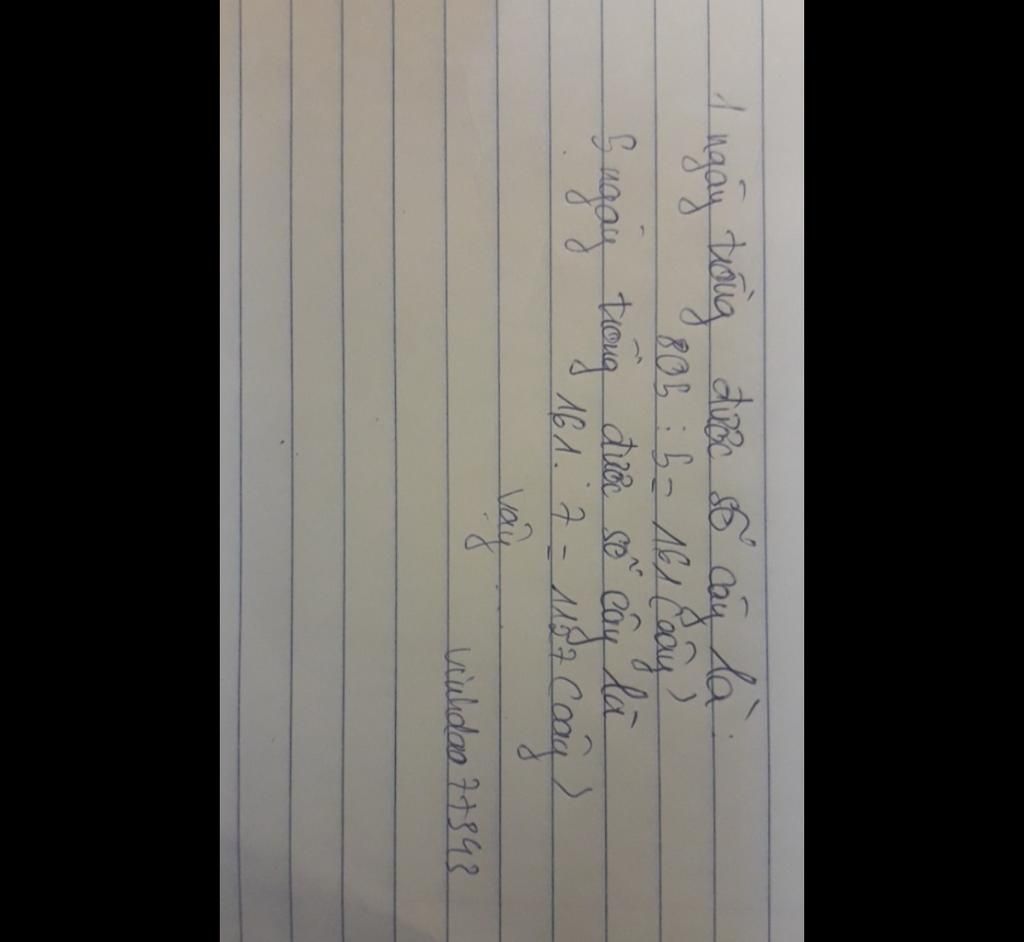 1 ngày trồng được số cây là:
805 : 5 = 161 (cây)
5 ngày trồng được số cây là
161 . 7 = 1127 (cây)
Vậy ....
vinhdao77943